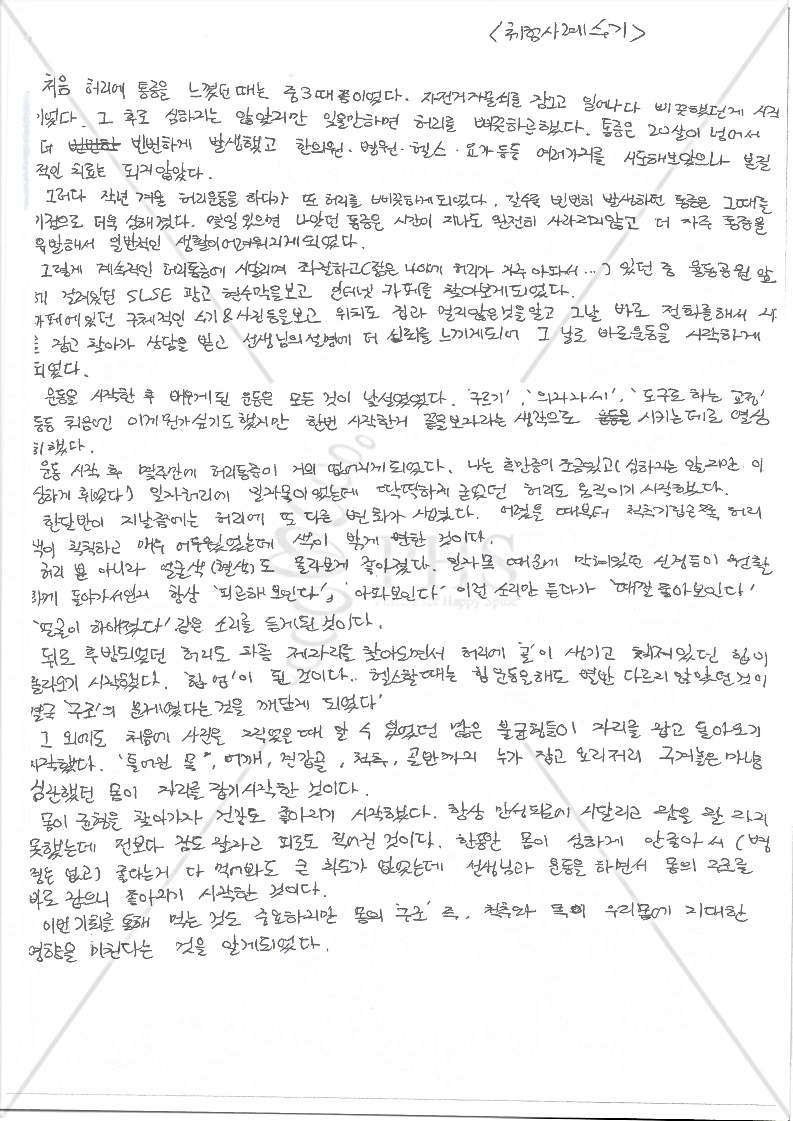 <취험사례수기>
처음 허리에 통증을 느꼈던 때는 중3때쯤이었다. 자전거자물쇠를 잠그고 일어나다 삐끗했던게 시작
이었다. 그 후로 심하지는 않았지만 잊을만하면 허리를 삐끗하곤했다. 통증은 20살이 넘어서
더 빈번하게 발생했고 한의원·병원·헬스·요가등등 여러가지를 시도해보았으나 본질
적인 치료는 되지않았다.
그러다 작년 겨울 허리운동을 하다가 또 허리를 삐끗하게되었다. 갈수록 빈번히 발생하던 통증은 그때를
기점으로 더욱 심해졌다. 몇일있으면 나았던 통증은 시간이 지나도 완전히 사라지지않고 더 자주 통증을
유발해서 일반적인 생활이어려워지게되었다.
그렇게 계속적인 허리통증에 시달리며 좌절하고(젊은 나이에 허리가 자주 아파서...) 있던 중 운동공원 앞
에 걸려있던 SLSE 광고 현수막을보고 인터넷 카페를 찾아보게되었다.
카페에있던 구체적인 수기&사진등을보고 위치도 집과 멀지않은것을알고 그날 바로 전화를해서 시
를 잡고 찾아가 상담을 받고 선생님의설명에 더 신뢰를 느끼게되어 그 날로 바로운동을 시작하게
되었다.
운동을 시작한 후 배우게된 운동은 모든 것이 낯설었었다. '구르기', '의자자세', '도구로 하는 교정'
등등 처음엔 이게뭔가싶기도했지만 한번 시작한거 끝을보자라는 생각으로 시키는데로 열심
히했다.
운동 시작 후 몇주만에 허리통증이 거의 없어지게되었다. 나는 흉만증이 조금있고(심하지는 않지만 미
심하게 휘었다) 일자허리에 일자목이었는데 딱딱하게 굳었던 허리도 움직이기 시작했다.
한달반이 지날쯤에는 허리에 또 다른 변화가 생겼다. 어렸을 때부터 척추기립근쪽 허리
쪽이 칙칙하고 매우 어두웠었는데 색이 밝게 변한 것이다.
허리 뿐 아니라 얼굴색(혈색)도 몰라보게 좋아졌다. 일자목 때문에 막혀있던 신경등이 원활
하게 돌아가서인지 항상 '피곤해 보인다', '아파보인다' 이런 소리만 듣다가 '때깔 좋아보인다'
'얼굴이 하얘졌다' 같은 소리를 듣게된 것이다.
뒤로 후방되었던 허리도 차츰 제자리를 찾아오면서 허리에 '골'이 생기고 처져있던 힙이
올라오기 시작했다. '힙 업'이 된 것이다.. 헬스할때는 힙운동을해도 별반 다르지 않았던것이
결국 '구조'의 문제였다는것을 깨닫게 되었다'
그 외에도 처음에 사진을 찍었을때 알 수 있었던 많은 불균형들이 자리를 잡고 돌아오기
시작했다. '틀어진 목', 어깨, 견갑골, 척추, 골반까지 누가 잡고 요리저리 구겨놓은마냥
심란했던 몸이 자리를 잡기시작한 것이다.
몸이 균형을 찾아가자 건강도 좋아지기 시작하였다. 항상 만성피로에 시달리고 잠을 잘 자지
못했는데 전보다 잠도 잘자고 피로도 적어진 것이다. 한동안 몸이 심하게 안좋아서 (병
명은 없고) 좋다는거 다 먹어봐도 큰 차도가 없었는데 선생님과 운동을 하면서 몸의 구조를
바로 잡으니 좋아지기 시작한 것이다.
이번기회를 통해 먹는 것도 중요하지만 몸의 '구조' 즉, 척추와 목이 우리몸에 지대한
영향을 미친다는 것을 알게되었다.